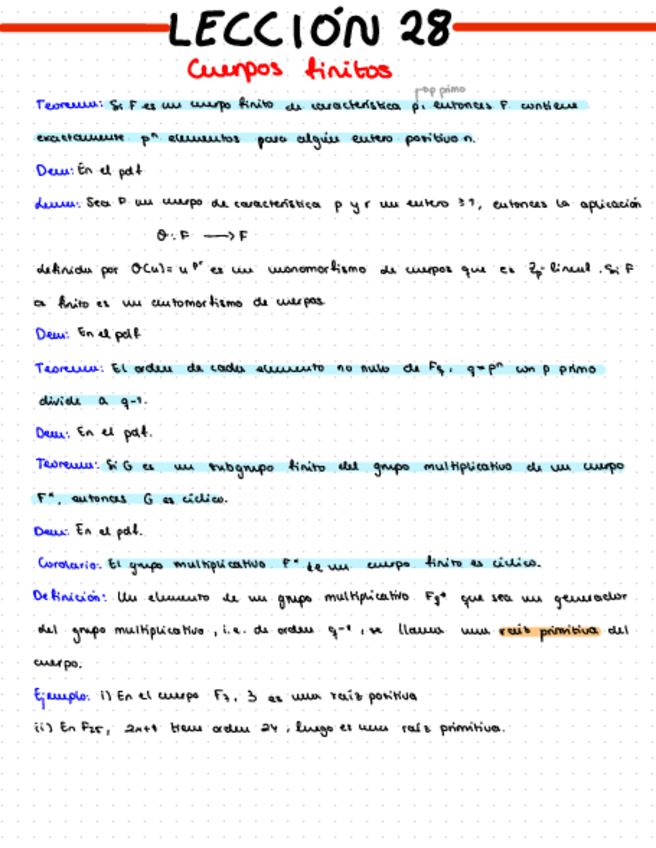 LECCIÓN 28
Cuerpos finitos
→ p primo
Teorema: Si F es un cuerpo finito de característica p, entonces F contiene
exactamente pⁿ elementos para algún entero positivo n.
Dem: En el pdf
Lema: Sea F un cuerpo de característica p y r un entero ≥1, entonces la aplicación
θ: F → F
definida por θ(u) = u^p^r es un monomorfismo de cuerpos que es Zp-lineal. Si F
es finito es un automorfismo de cuerpos
Dem: En el pdf
Teorema: El orden de cada elemento no nulo de Fq, q=pⁿ con p primo
divide a q-1.
Dem: En el pdf.
Teorema: Si G es un subgrupo finito del grupo multiplicativo de un cuerpo
F*, entonces G es cíclico.
Dem: En el pdf.
Corolario: El grupo multiplicativo F* de un cuerpo finito es cíclico.
Definición: Un elemento de un grupo multiplicativo Fq* que sea un generador
del grupo multiplicativo, i.e. de orden q-1, se llama una raíz primitiva del
cuerpo.
Ejemplo: i) En el cuerpo F7, 3 es una raíz positiva
ii) En F25, 2x+1 tiene orden 24, luego es una raíz primitiva.